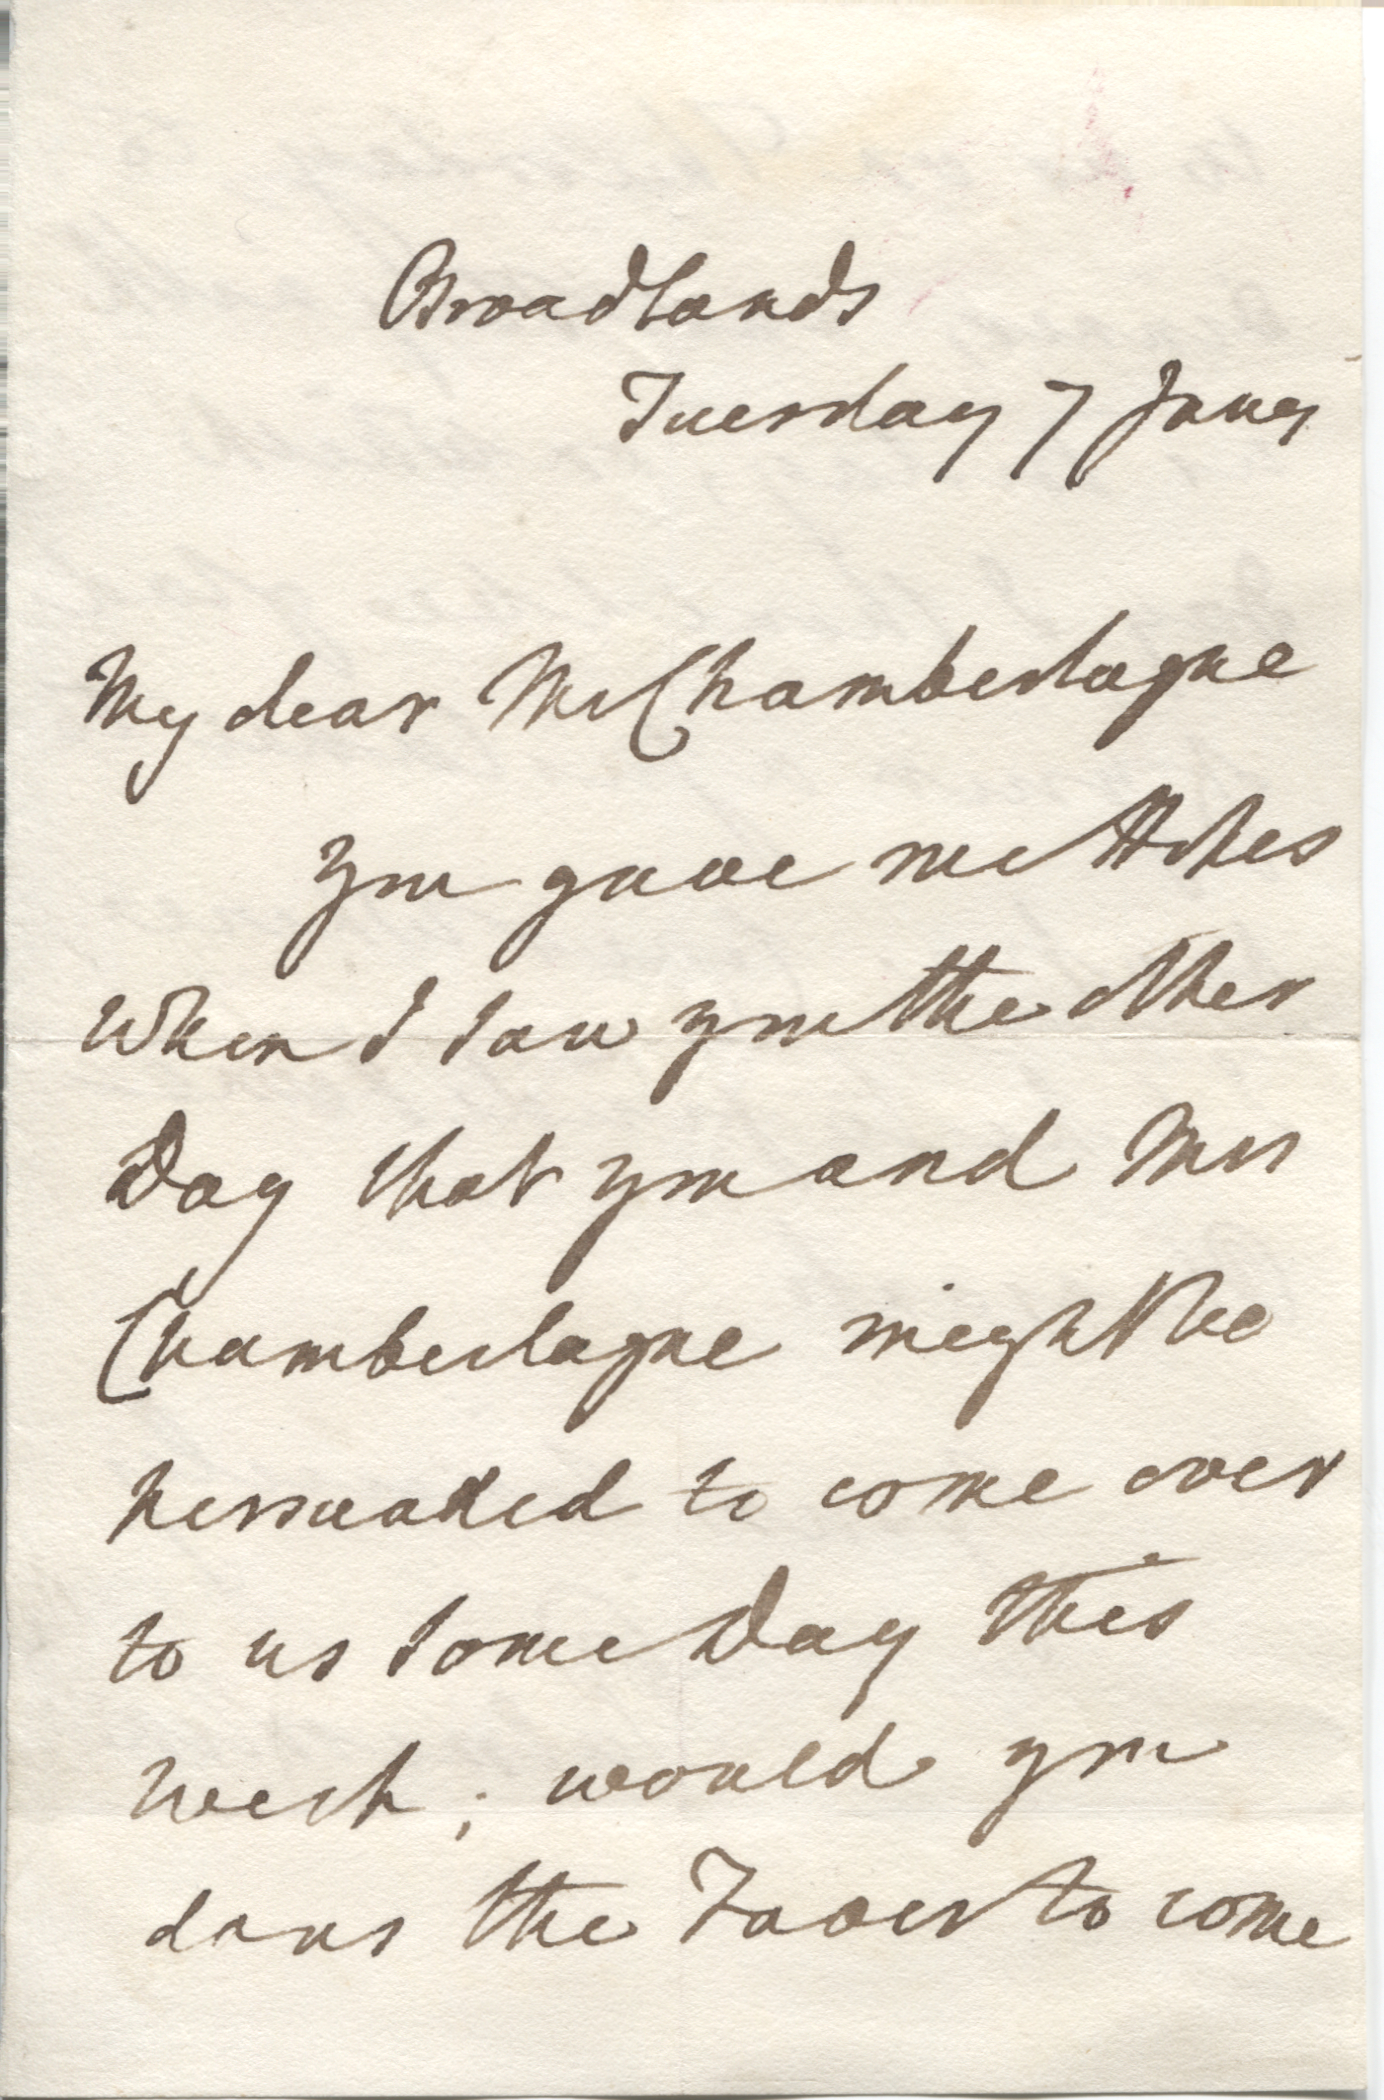 Broadlands
Tuesday 7 Jany
My dear Mr Chamberlayne
You gave me Hopes
when I saw you the other
Day that you and Mrs
Chamberlayne might be
persuaded to come over
to us some Day this
week; would you
do us the Favor to come